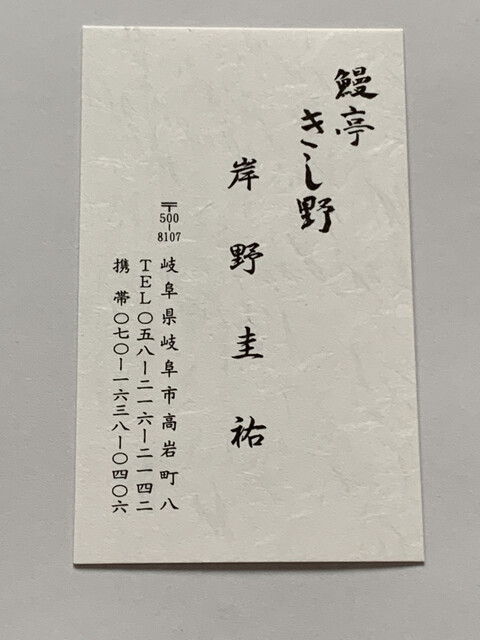 鰻亭
きし野
岸野圭祐
〒500-8107
岐阜県岐阜市高岩町八
TEL〇五八ー二一六ー二一四二
携帯〇七〇ー一六三八ー〇四〇六